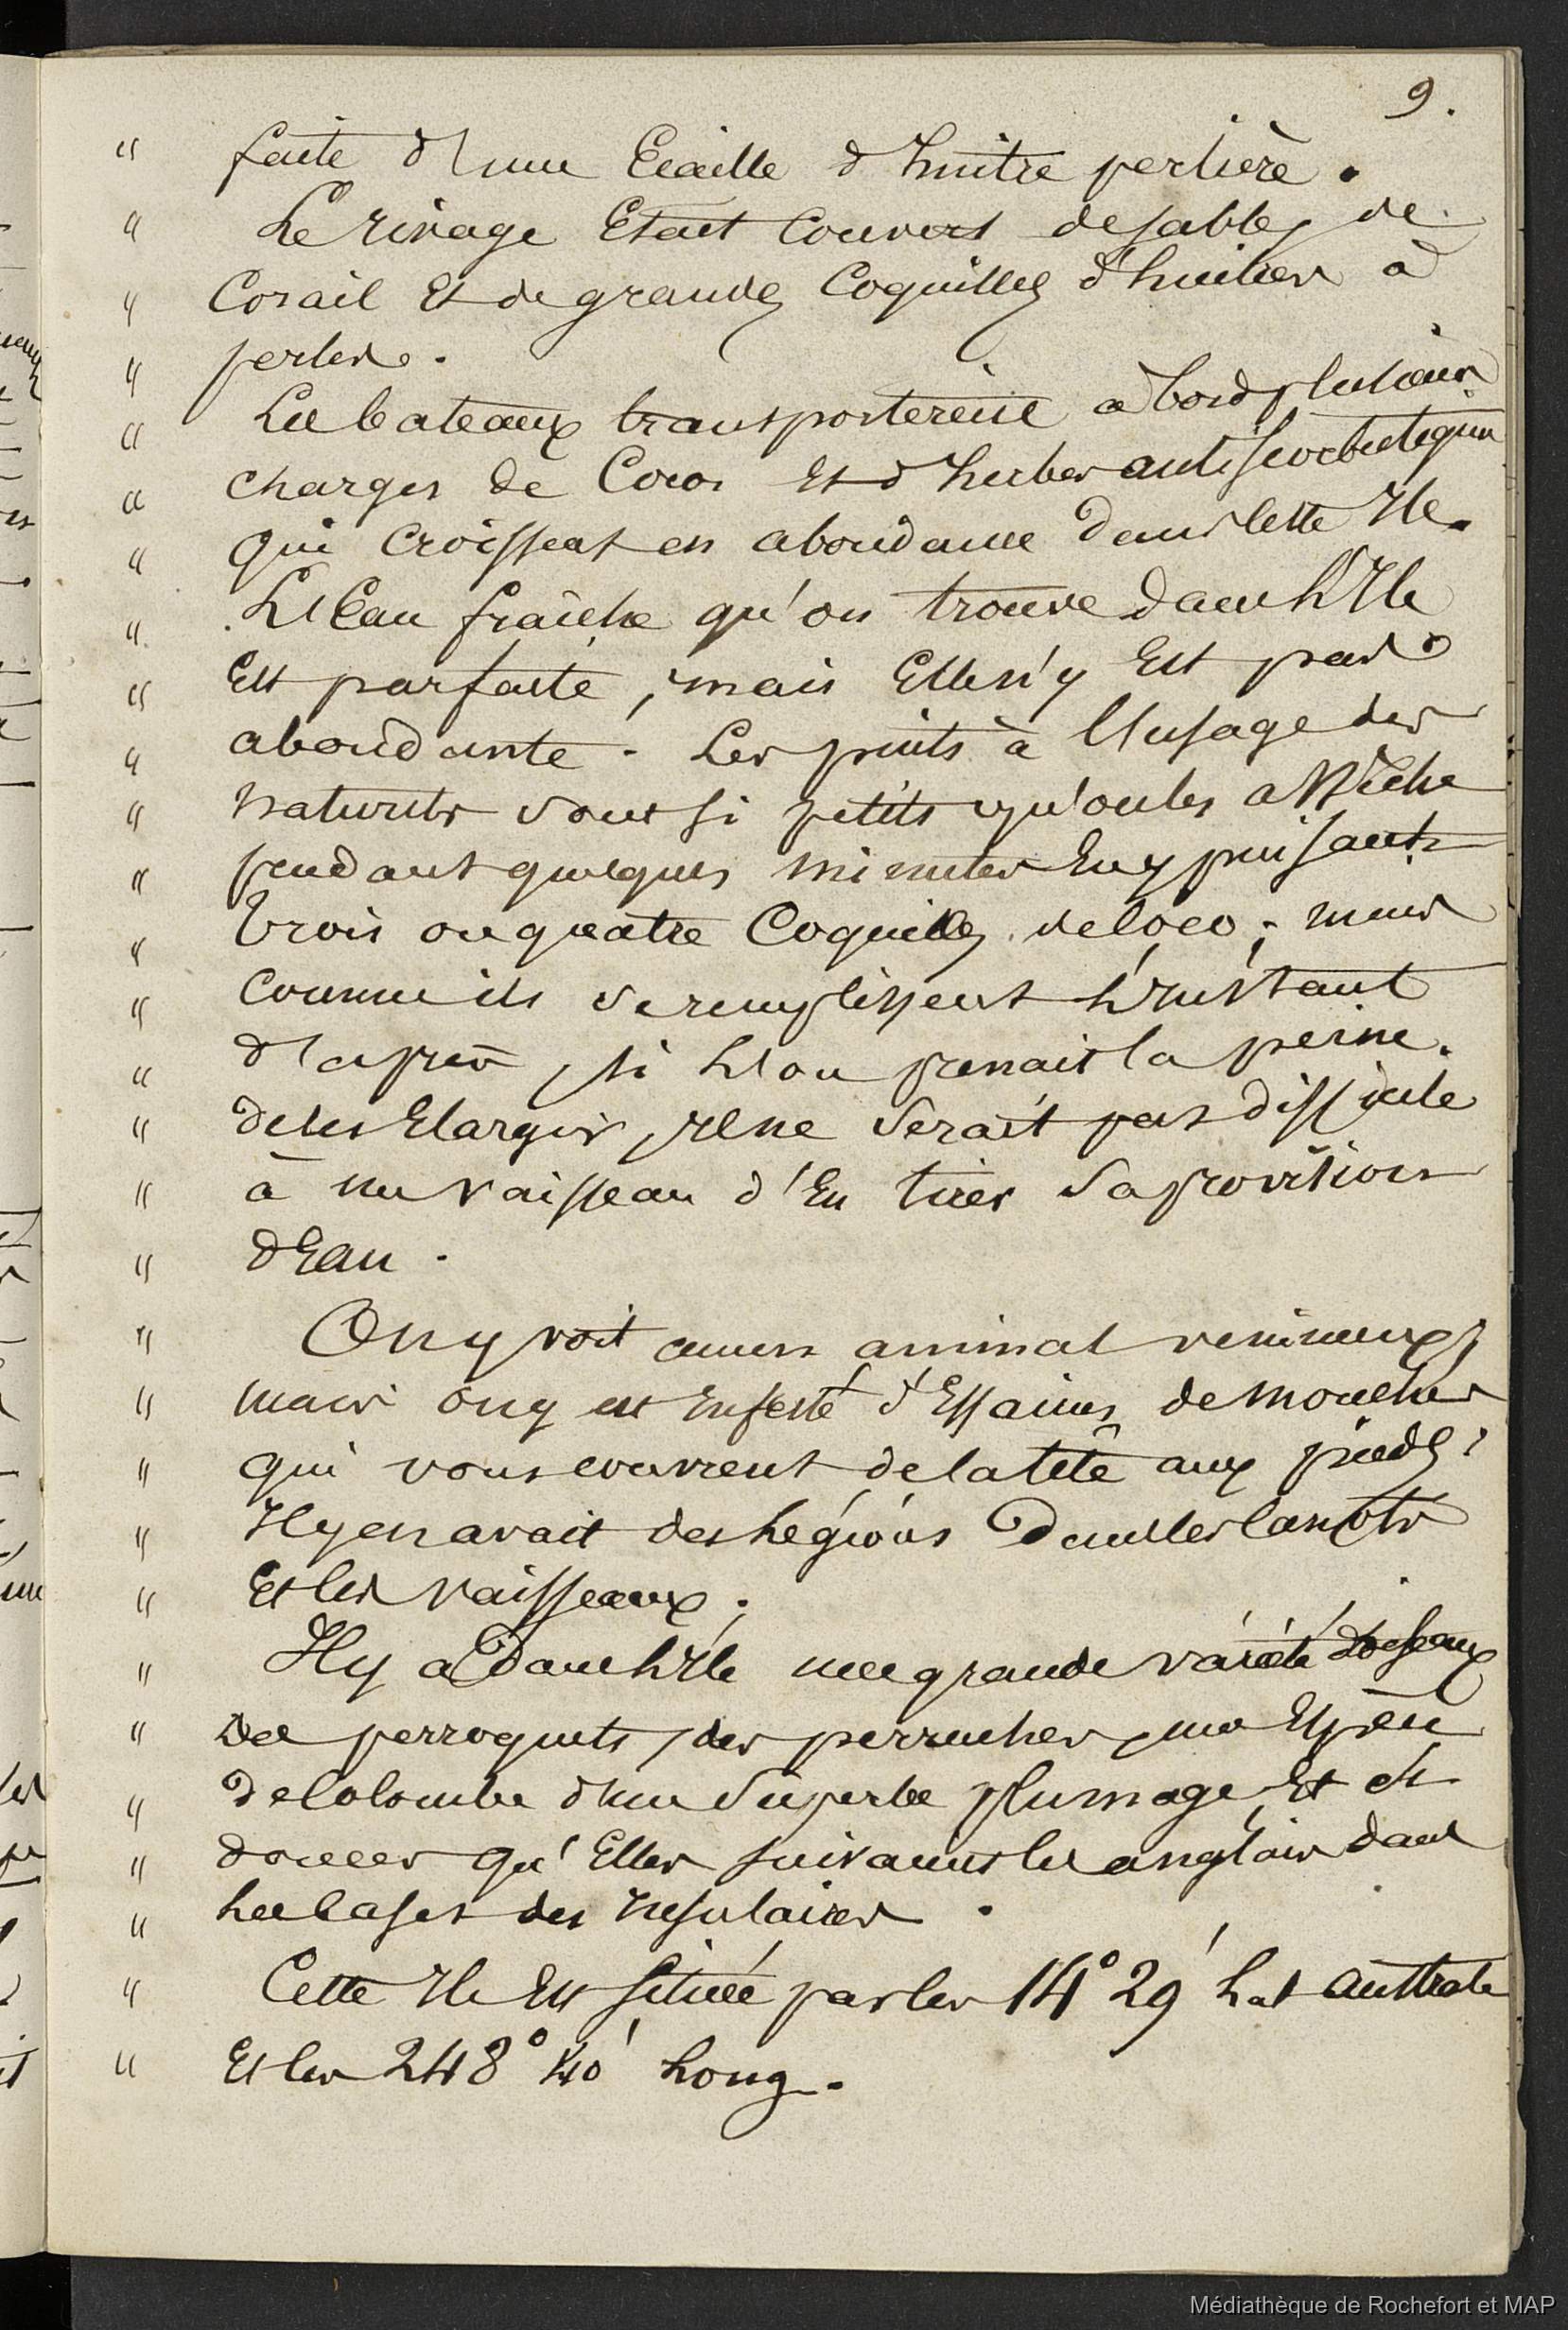 9.
" faite d'une Ecaille d'huitre perlière.
" Le rivage Etait Couvert de sable, de
" Corail Et de grandes Coquilles d'huitres à
" perles.
" Les bateaux transportèrent à bord plusieurs
" charges de Cocos Et d'herbes antiscorbutiques
" qui croissent en abondance dans cette Ile.
" L'Eau fraîche qu'on trouve dans L'Ile
" Est parfaite, mais Elle n'y Est pas
" abondante. Les puits à l'usage des
" naturels sont si petits qu'on les assèche
" pendant quelques minutes En y puisant
" trois ou quatre Coquilles de Coco; mais
" comme ils se remplissent L'Instant
" d'après, si L'on prenait la peine
" de les Elargir, Il ne serait pas difficile
" à un vaisseau d'En tirer sa provision
" d'Eau.
" On y voit aucun animal venimeux,
" mais on y est Infesté d'Essaims de mouches
" qui vous couvrent de la tête aux pieds;
" Il y en avait des Légions Dans les canots
" Et les vaisseaux.
" Il y a Dans L'Ile une grande variété d'oiseaux
" des perroquets, des perruches, une Espèce
" de Colombe d'un superbe plumage Et si
" douces qu'Elles suivaient les anglais dans
" Les Cases des Insulaires.
" Cette Ile Est située par les 14° 29' Lat australe
" Et les 248° 40' Long.
Médiathèque de Rochefort et MAP